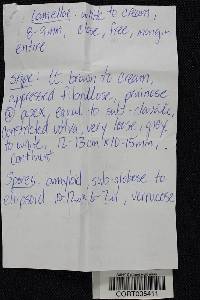 Lamellae: white to cream,
8-9mm, close, free, margin
entire
Stipe: lt brown to cream,
appressed fibrillose, pruinose
@ apex, equal to sub-clavate,
constricted volva, very loose, grey
to white, 12-13cm x 10-15mm,
context
Spores: amyloid, sub-globose to
ellipsoid, x 6-7µ, verrucose
CORT005411